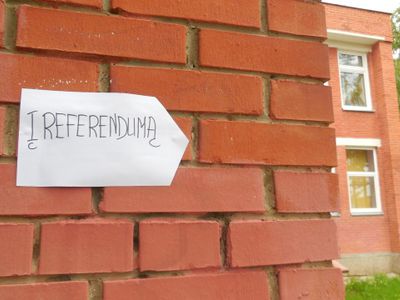 Į REFERENDUMĄ